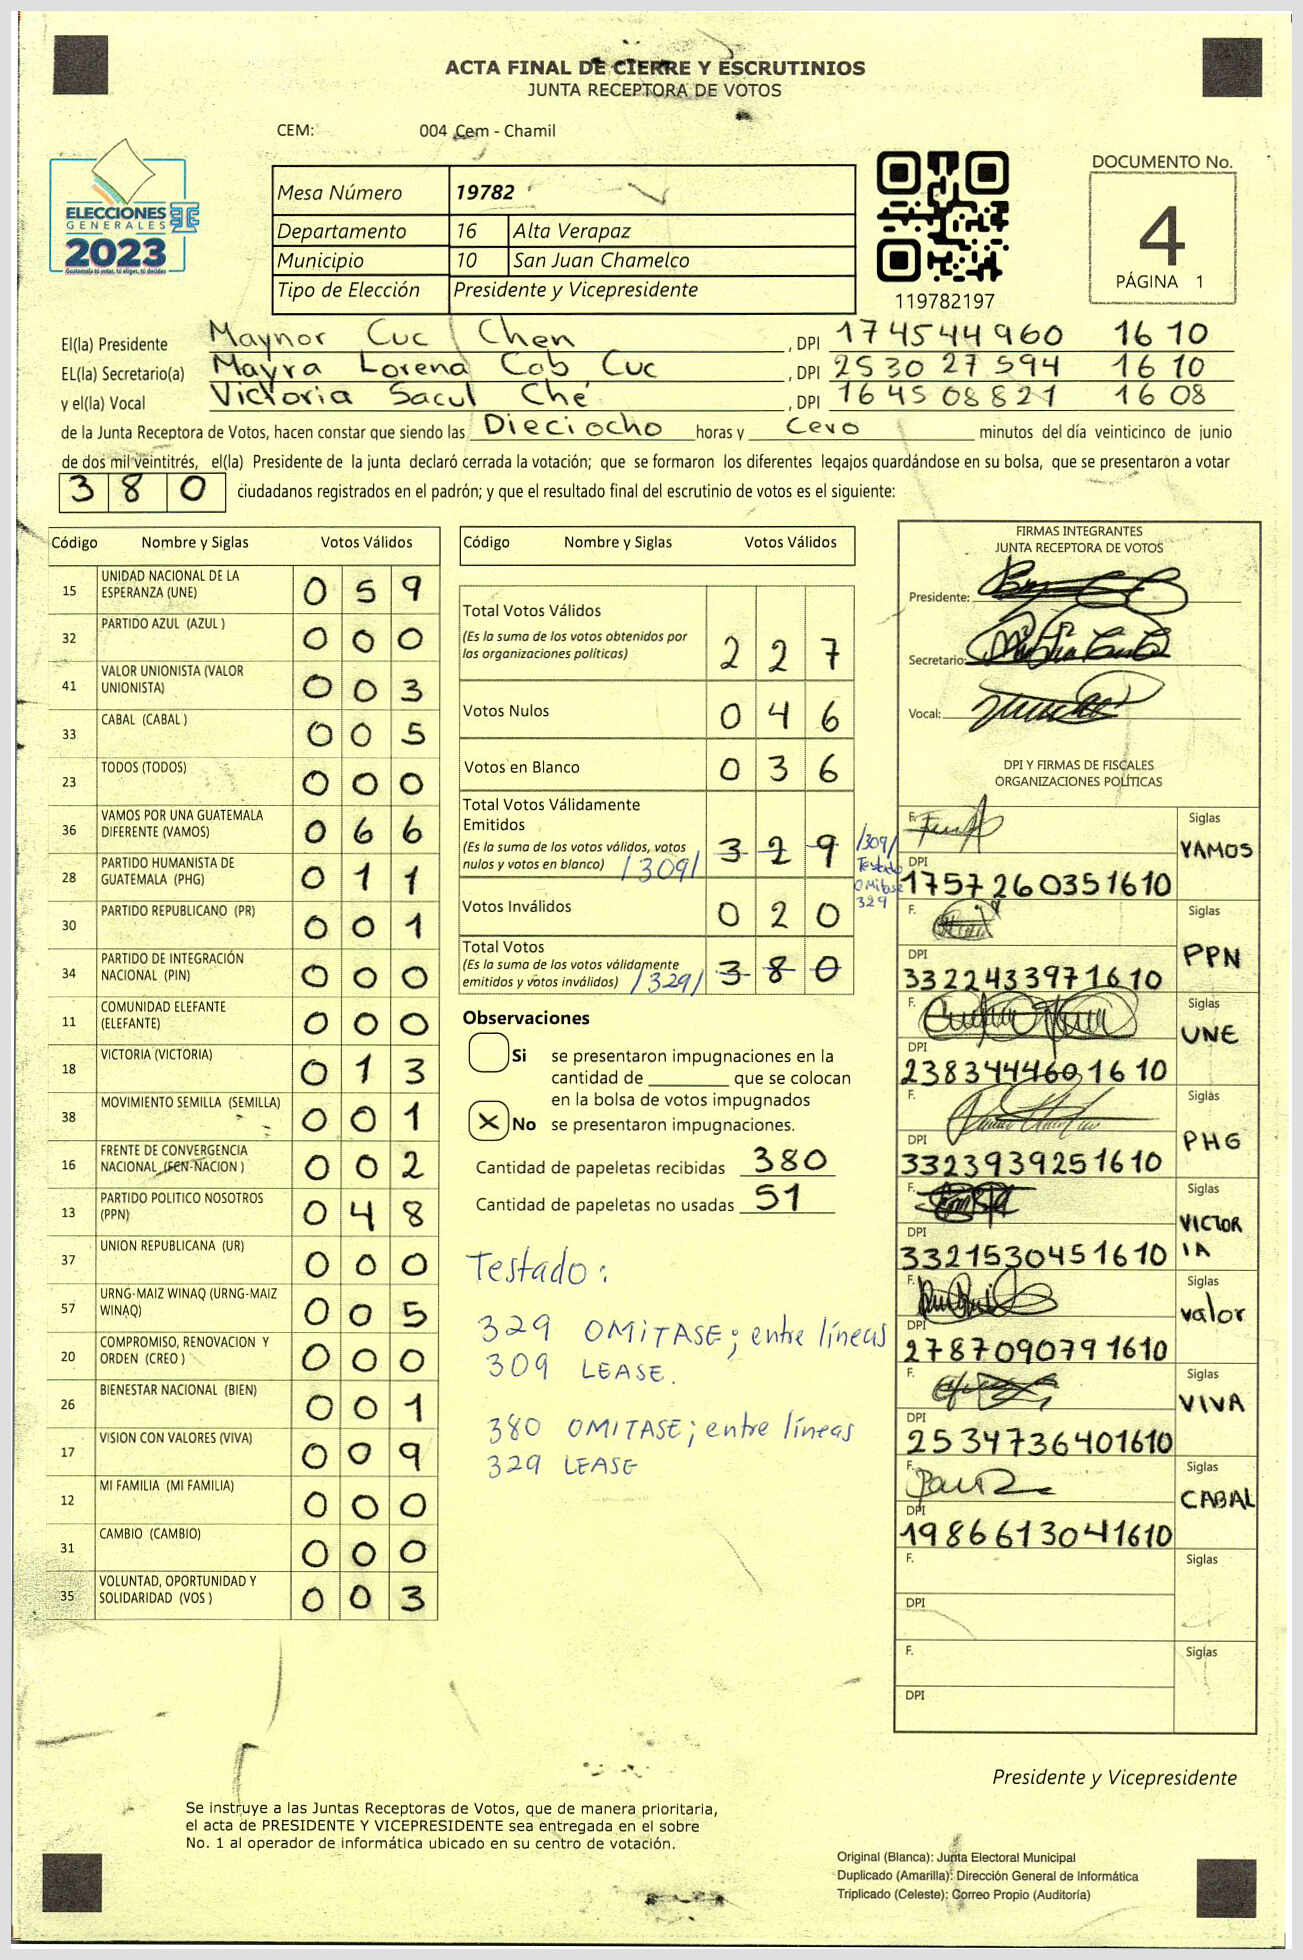 ACTA FINAL DE CIERRE Y ESCRUTINIOS
JUNTA RECEPTORA DE VOTOS
CEM: 004 Cem - Chamil
ELECCIONES
GENERALES
2023
Guatemala tú votas, tú eliges, tú decides
Mesa Número 19782
Departamento 16 Alta Verapaz
Municipio 10 San Juan Chamelco
Tipo de Elección Presidente y Vicepresidente
119782197
DOCUMENTO No.
4
PÁGINA 1
El(la) Presidente Maynor Cuc Chen , DPI 174544960 1610
EL(la) Secretario(a) Mayra Lorena Cob Cuc , DPI 253027594 1610
y el(la) Vocal Victoria Sacul Ché , DPI 164508821 1608
de la Junta Receptora de Votos, hacen constar que siendo las Dieciocho horas y cero minutos del día veinticinco de junio
de dos mil veintitrés, el(la) Presidente de la junta declaró cerrada la votación; que se formaron los diferentes legajos guardándose en su bolsa, que se presentaron a votar
380 ciudadanos registrados en el padrón; y que el resultado final del escrutinio de votos es el siguiente:
Código Nombre y Siglas Votos Válidos
15 UNIDAD NACIONAL DE LA ESPERANZA (UNE) 0 5 9
32 PARTIDO AZUL (AZUL ) 0 0 0
41 VALOR UNIONISTA (VALOR UNIONISTA) 0 0 3
33 CABAL (CABAL ) 0 0 5
23 TODOS (TODOS) 0 0 0
36 VAMOS POR UNA GUATEMALA DIFERENTE (VAMOS) 0 6 6
28 PARTIDO HUMANISTA DE GUATEMALA (PHG) 0 1 1
30 PARTIDO REPUBLICANO (PR) 0 0 1
34 PARTIDO DE INTEGRACIÓN NACIONAL (PIN) 0 0 0
11 COMUNIDAD ELEFANTE (ELEFANTE) 0 0 0
18 VICTORIA (VICTORIA) 0 1 3
38 MOVIMIENTO SEMILLA (SEMILLA) 0 0 1
16 FRENTE DE CONVERGENCIA NACIONAL (FCN-NACION ) 0 0 2
13 PARTIDO POLITICO NOSOTROS (PPN) 0 4 8
37 UNION REPUBLICANA (UR) 0 0 0
57 URNG-MAIZ WINAQ (URNG-MAIZ WINAQ) 0 0 5
20 COMPROMISO, RENOVACION Y ORDEN (CREO ) 0 0 0
26 BIENESTAR NACIONAL (BIEN) 0 0 1
17 VISION CON VALORES (VIVA) 0 0 9
12 MI FAMILIA (MI FAMILIA) 0 0 0
31 CAMBIO (CAMBIO) 0 0 0
35 VOLUNTAD, OPORTUNIDAD Y SOLIDARIDAD (VOS ) 0 0 3
Código Nombre y Siglas Votos Válidos
Total Votos Válidos
(Es la suma de los votos obtenidos por
las organizaciones políticas) 2 2 7
Votos Nulos 0 4 6
Votos en Blanco 0 3 6
Total Votos Válidamente
Emitidos
(Es la suma de los votos válidos, votos
nulos y votos en blanco) /309/ 3 2 9
/309/
Testado
Omitase
329
Votos Inválidos 0 2 0
Total Votos
(Es la suma de los votos válidamente
emitidos y votos inválidos) /329/ 3 8 0
Observaciones
Si se presentaron impugnaciones en la
cantidad de ________ que se colocan
en la bolsa de votos impugnados
X No se presentaron impugnaciones.
Cantidad de papeletas recibidas 380
Cantidad de papeletas no usadas 51
Testado:
329 OMITASE; entre líneas
309 LEASE.
380 OMITASE; entre líneas
329 LEASE
FIRMAS INTEGRANTES
JUNTA RECEPTORA DE VOTOS
Presidente:
Secretario:
Vocal:
DPI Y FIRMAS DE FISCALES
ORGANIZACIONES POLÍTICAS
F. Siglas
VAMOS
DPI
1757260351610
F. Siglas
PPN
DPI
3322433971610
F. Siglas
UNE
DPI
2383444601610
F. Siglas
PHG
DPI
3323939251610
F. Siglas
VICTORIA
DPI
3321530451610
F. Siglas
valor
DPI
2787090791610
F. Siglas
VIVA
DPI
2534736401610
F. Siglas
CABAL
DPI
1986613041610
F. Siglas
DPI
F. Siglas
DPI
Presidente y Vicepresidente
Se instruye a las Juntas Receptoras de Votos, que de manera prioritaria,
el acta de PRESIDENTE Y VICEPRESIDENTE sea entregada en el sobre
No. 1 al operador de informática ubicado en su centro de votación.
Original (Blanca): Junta Electoral Municipal
Duplicado (Amarilla): Dirección General de Informática
Triplicado (Celeste): Correo Propio (Auditoría)